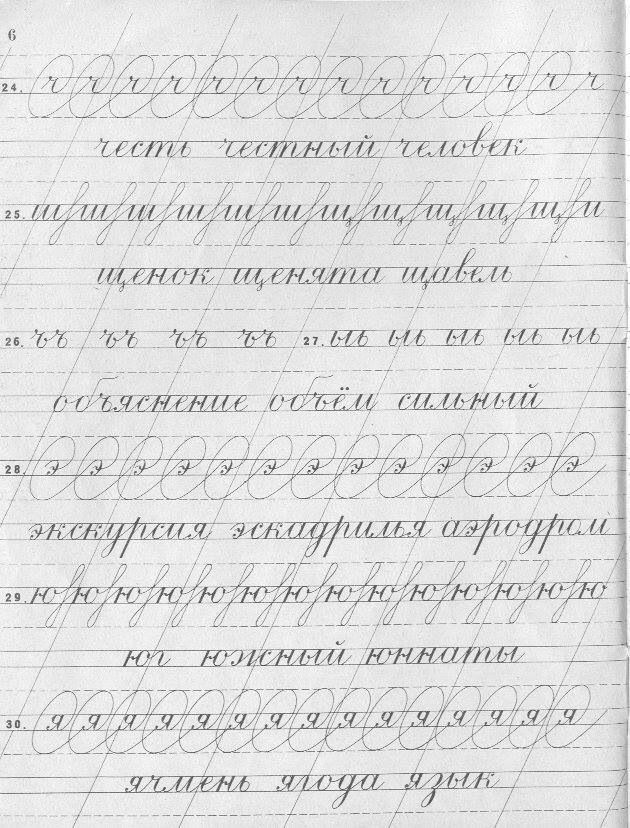 6
24. ч ч ч ч ч ч ч ч ч ч ч ч ч ч
честь честный человек
25. ш ш ш ш ш ш щ щ щ щ щ и
щенок щенята щавель
26. ъъ ъъ ъъ ъъ 27. ыь ыь ыь ыь ыь
объяснение объём сильный
28. э э э э э э э э э э э э э
экскурсия эскадрилья аэродром
29. ю ю ю ю ю ю ю ю ю ю ю ю ю ю
юг южный юннаты
30. я я я я я я я я я я я я я я я
ячмень ягода язык